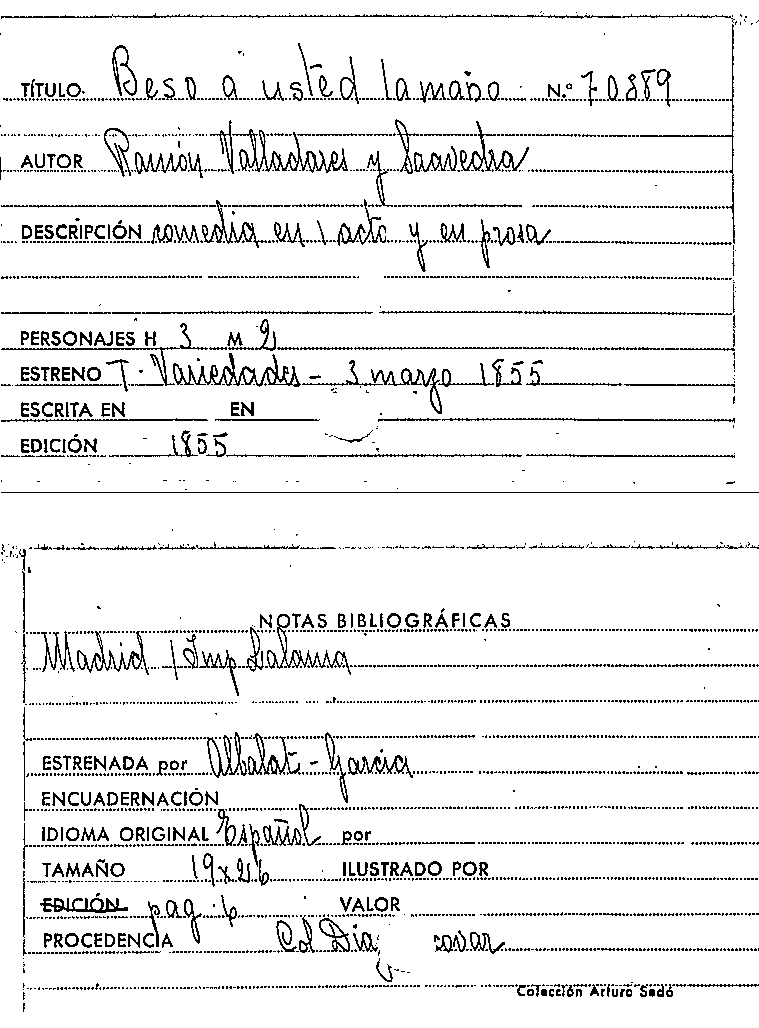 TÍTULO. Beso a usted la mano. N.º 70889
AUTOR Ramón Valladares y Saavedra
DESCRIPCIÓN comedia en 1 acto y en prosa
PERSONAJES H 3 M 2
ESTRENO T. Variedades - 3 marzo 1855
ESCRITA EN EN
EDICIÓN 1855
NOTAS BIBLIOGRÁFICAS
Madrid / Imp Lalama
ESTRENADA por Albalat - García
ENCUADERNACIÓN
IDIOMA ORIGINAL Español por
TAMAÑO 19x26 ILUSTRADO POR
EDICIÓN pag. 6 VALOR
PROCEDENCIA Col Diaz
Colección Arturo Sedó